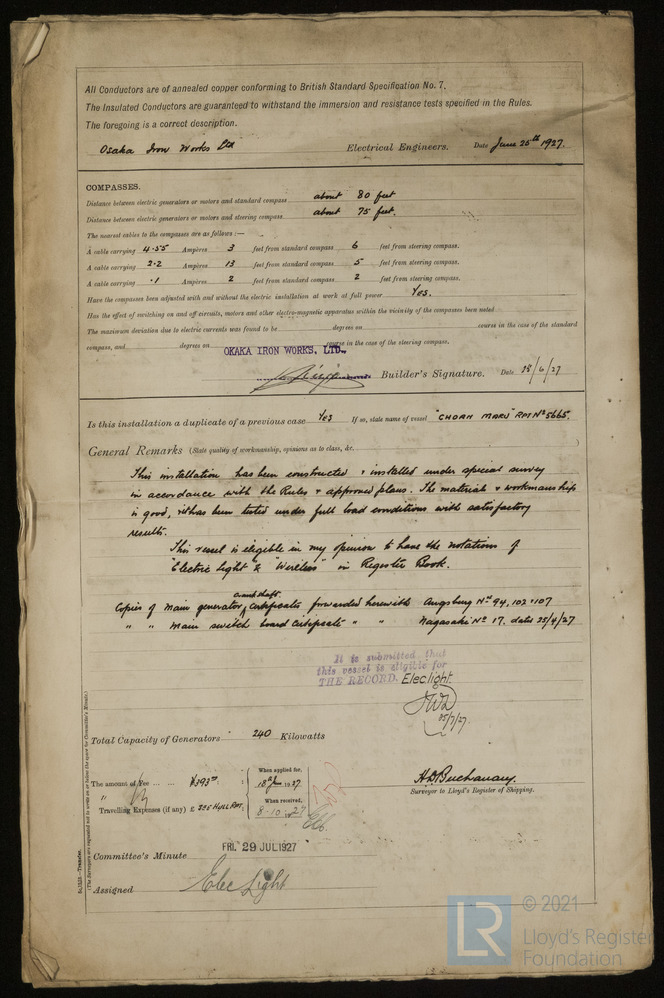 All Conductors are of annealed copper conforming to British Standard Specification No. 7.
The Insulated Conductors are guaranteed to withstand the immersion and resistance tests specified in the Rules.
The foregoing is a correct description.
Osaka Iron Works Ltd Electrical Engineers. Date June 25th 1927.
COMPASSES.
Distance between electric generators or motors and standard compass about 80 feet
Distance between electric generators or motors and steering compass about 75 feet.
The nearest cables to the compasses are as follows:—
A cable carrying 4.55 Ampères 3 feet from standard compass 6 feet from steering compass.
A cable carrying 2.2 Ampères 13 feet from standard compass 5 feet from steering compass.
A cable carrying .1 Ampères 2 feet from standard compass 2 feet from steering compass.
Have the compasses been adjusted with and without the electric installation at work at full power Yes.
Has the effect of switching on and off circuits, motors and other electro-magnetic apparatus within the vicinity of the compasses been noted
The maximum deviation due to electric currents was found to be degrees on course in the case of the standard
compass, and degrees on course in the case of the steering compass.
OKAKA IRON WORKS, LTD.,
Builder's Signature. Date 18/6/27
Is this installation a duplicate of a previous case Yes If so, state name of vessel "CHOAN MARU" RPT No 5665.
General Remarks (State quality of workmanship, opinions as to class, &c.
This installation has been constructed & installed under special survey
in accordance with the Rules & approved plans. The material & workmanship
is good, it has been tested under full load conditions with satisfactory
results.
This vessel is eligible in my opinion to have the notations of
"Electric Light & "Wireless" in Register Book.
crank shaft
Copies of main generator certificates forwarded herewith Augsburg No 94, 102 & 107
" " main switch board certificate " " Nagasaki No 17. dated 25/4/27
It is submitted that
this vessel is eligible for
THE RECORD. Elec light.
25/7/27.
Total Capacity of Generators 240 Kilowatts
The amount of Fee ... ... ¥393.00 When applied for, 18th June 1927.
Travelling Expenses (if any) £ SEE HULL RPT. When received, 8-10-1927
H.D. Buchanan.
Surveyor to Lloyd's Register of Shipping.
Committee's Minute FRI. 29 JUL 1927
Assigned Elec Light
(The Surveyors are requested not to write on or below the space for Committee's Minute.)
© 2021
LR Lloyd's Register
Foundation